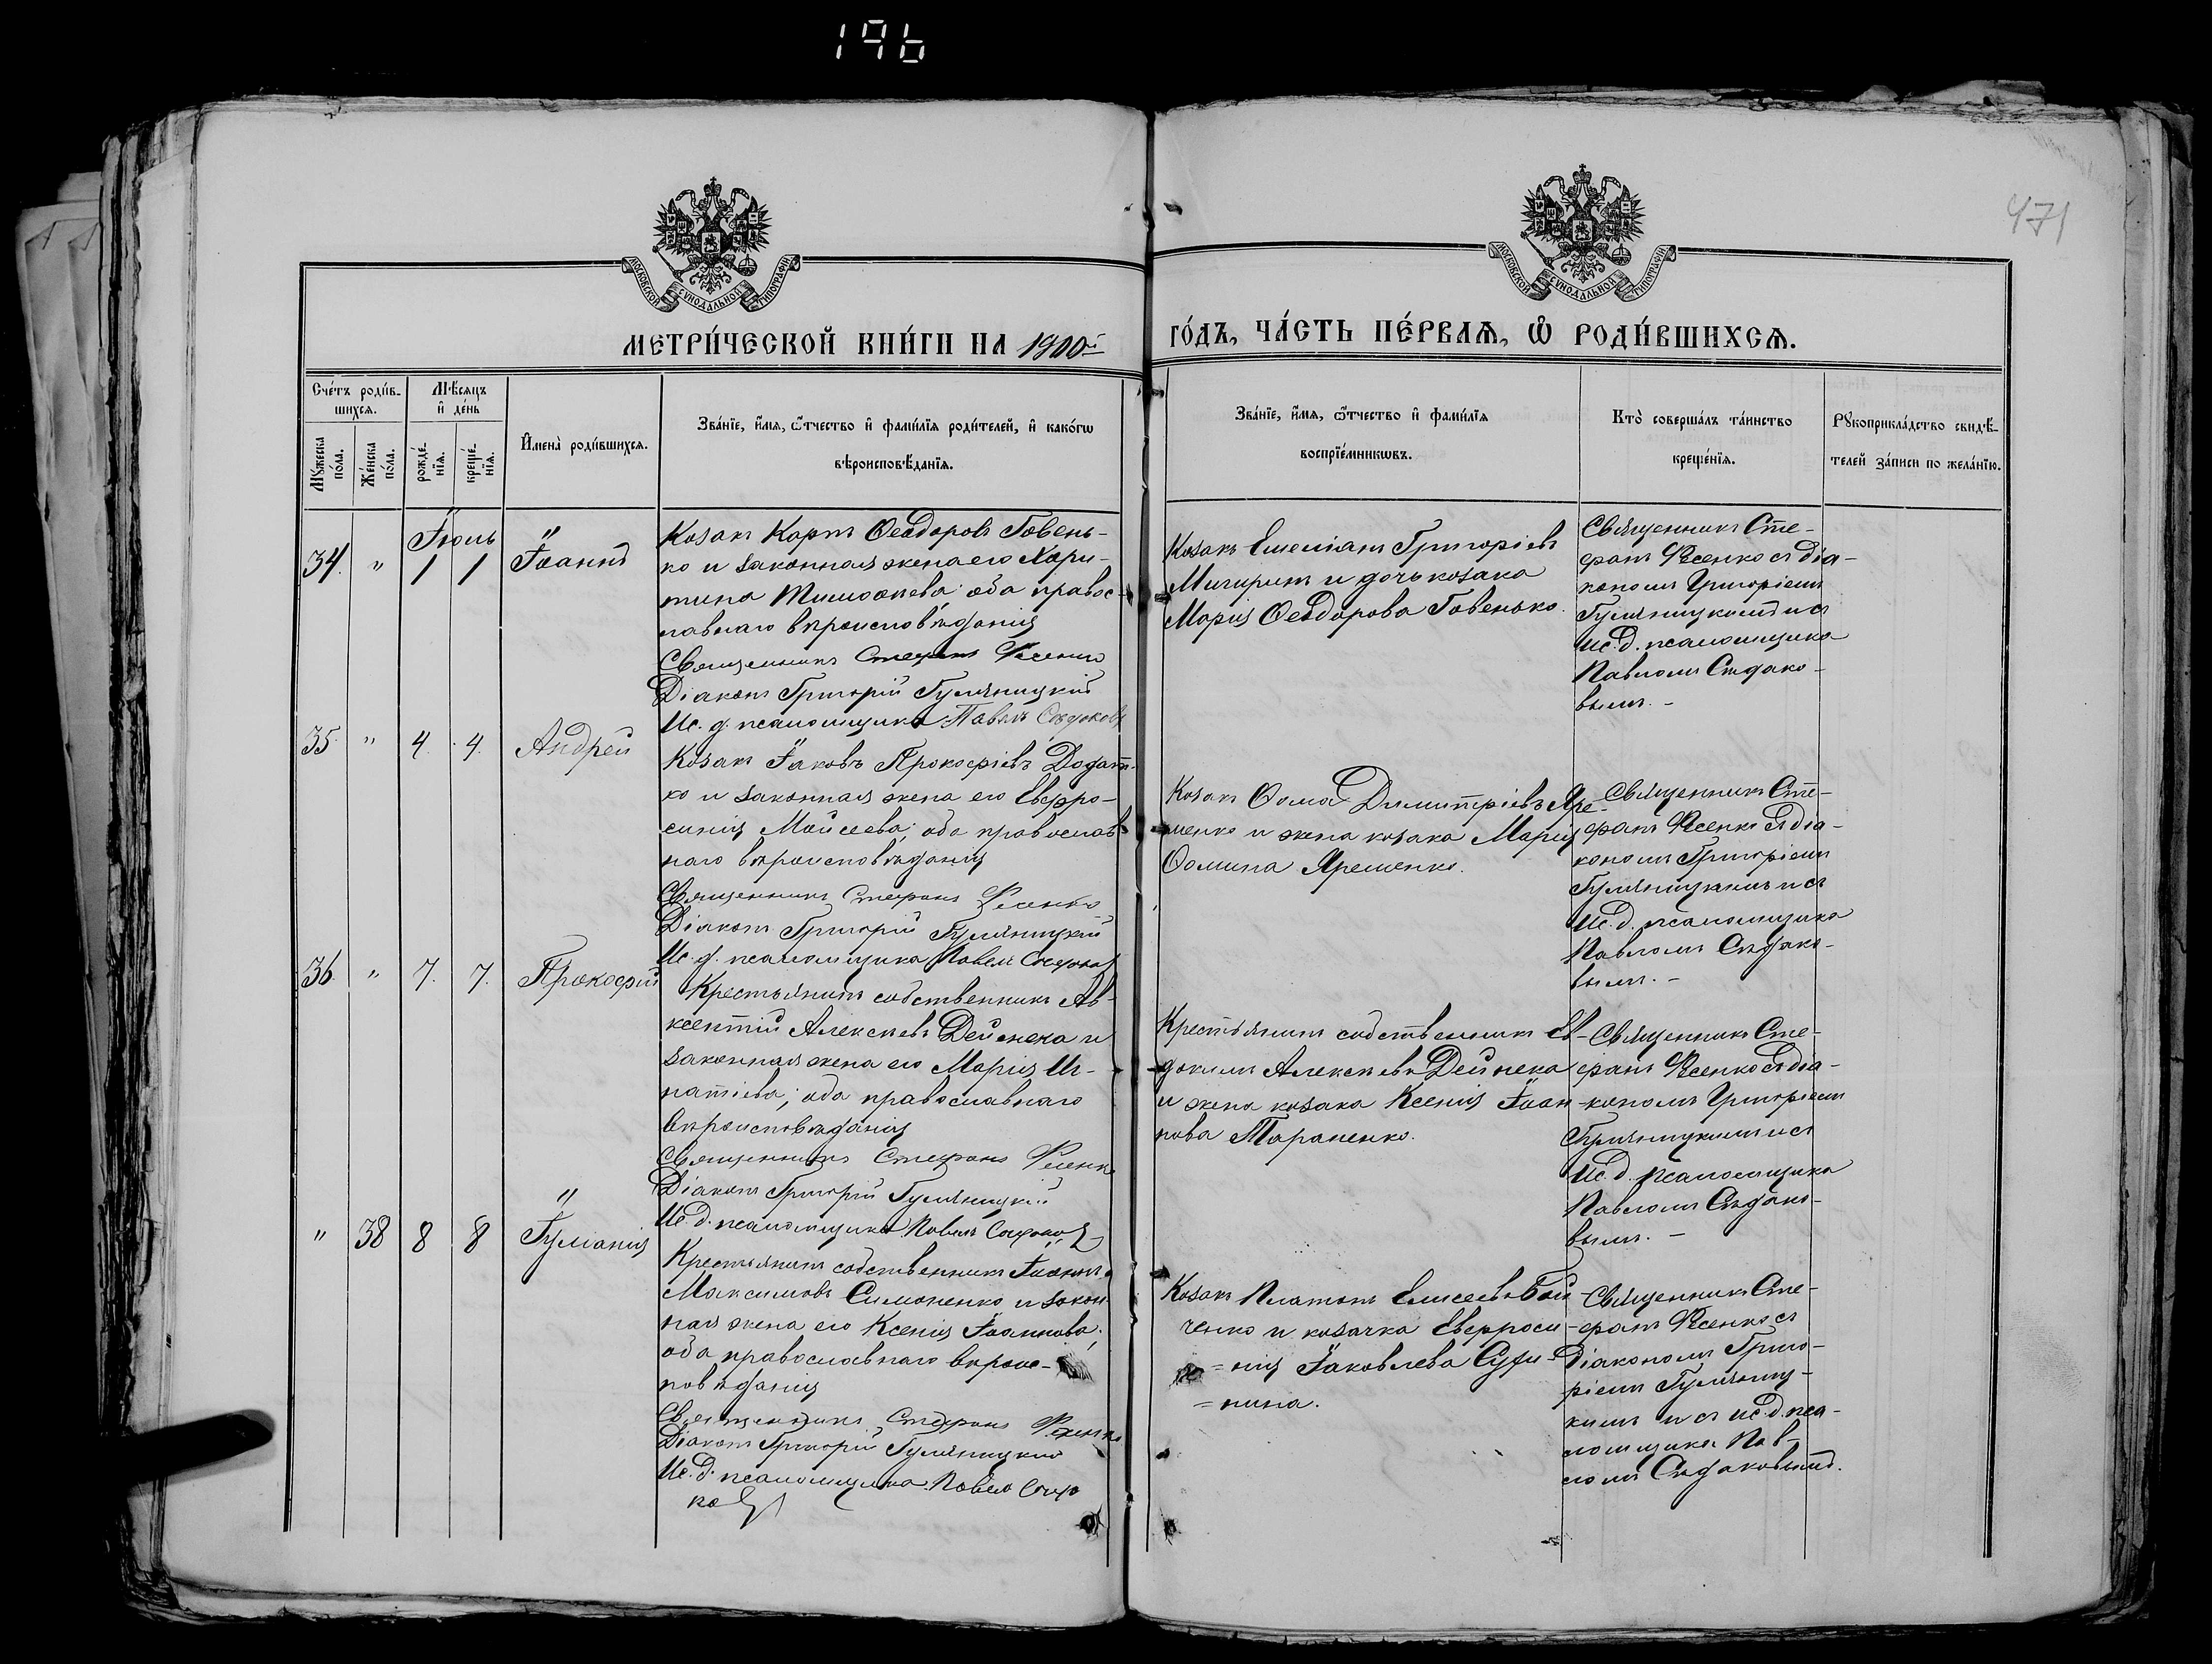 196
471
МОСКОВСКОЙ СѴНОДАЛЬНОЙ ТИПОГРАФІИ
МОСКОВСКОЙ СѴНОДАЛЬНОЙ ТИПОГРАФІИ
МЕТРИ́ЧЕСКОЙ КНИ́ГИ НА 1900й
ГО́ДЪ, ЧА́СТЬ ПЕ́РВАѦ, Ѡ҆ РОДИ́ВШИХСѦ.
Сче́тъ роди́в-
шихсѧ.
Мꙋ́жеска
по́ла.
Же́нска
по́ла.
Мѣ́сѧцъ
и҆ де́нь
рожде́-
нїѧ.
креще́-
нїѧ.
И҆мена̀ роди́вшихсѧ.
Зва́нїе, и҆́мѧ, ѻ҆́тчество и҆ фами́лїѧ роди́телей, и҆ како́гѡ
вѣроисповѣ́данїѧ.
Зва́нїе, и҆́мѧ, ѻ҆́тчество и҆ фами́лїѧ
воспрїе́мникѡвъ.
Кто̀ соверша́лъ та́инство
креще́нїѧ.
Рꙋкоприкла́дство свидѣ́-
телей за́писи по жела́нїю.
Іюль
34. " 1 1 Іоаннъ
Козакъ Карпъ Ѳеодоровъ Говень-
ко и законная жена его Хари-
тина Тимоѳеева; оба правос-
лавнаго вѣроисповѣданія
Священникъ Стефанъ Фесенко
Діаконъ Григорій Гуляницкій
Ис. д. псаломщика Павелъ Сѣдаковъ
Козакъ Емеліанъ Григоріевъ
Мигиритъ и дочь козака
Марія Ѳеодорова Говенько.
Священникъ Сте-
фанъ Фесенко съ діа-
кономъ Григоріемъ
Гуляницкимъ и съ
ис. д. псаломщика
Павломъ Сѣдако-
вымъ. -
35. " 4. 4. Андрей
Козакъ Іаковъ Прокофіевъ Додат-
ко и законная жена его Евфро-
синія Моисеева; оба православ-
наго вѣроисповѣданія
Священникъ Стефанъ Фесенко
Діаконъ Григорій Гуляницкій
Ис. д. псаломщика Павелъ Сѣдаковъ
Козакъ Ѳома Димитріевъ Яре-
менко и жена козака Марія
Ѳомина Яременко.
Священникъ Сте-
фанъ Фесенко съ діа-
кономъ Григоріемъ
Гуляницкимъ и съ
ис. д. псаломщика
Павломъ Сѣдако-
вымъ. -
36. " 7. 7. Прокофій
Крестьянинъ собственникъ Ав-
ксентій Алексѣевъ Дейнека и
законная жена его Марія Иг-
натіева; оба православнаго
вѣроисповѣданія
Священникъ Стефанъ Фесенко
Діаконъ Григорій Гуляницкій
Ис. д. псаломщика Павелъ Сѣдаковъ
Крестьянинъ собственникъ Ев-
докимъ Алексѣевъ Дейнека
и жена козака Ксенія Іоан-
нова Тараненко.
Священникъ Сте-
фанъ Фесенко съ діа-
кономъ Григоріемъ
Гуляницкимъ и съ
ис. д. псаломщика
Павломъ Сѣдако-
вымъ. -
" 38 8 8 Іуліанія
Крестьянинъ собственникъ Іоаннъ
Максимовъ Симоненко и закон-
ная жена его Ксенія Іоаннова;
оба православнаго вѣроис-
повѣданія
Священникъ Стефанъ Фесенко
Діаконъ Григорій Гуляницкій
Ис. д. псаломщика Павелъ Сѣда
ковъ
Козакъ Платонъ Елисеевъ Бой
ченко и козачка Евфроси-
=нія Іаковлева
=нина.
Священникъ Сте-
фанъ Фесенко съ
діакономъ Григо-
ріемъ Гуляниц-
кимъ и съ ис. д. пса-
ломщика Пав-
ломъ Сѣдаковымъ.